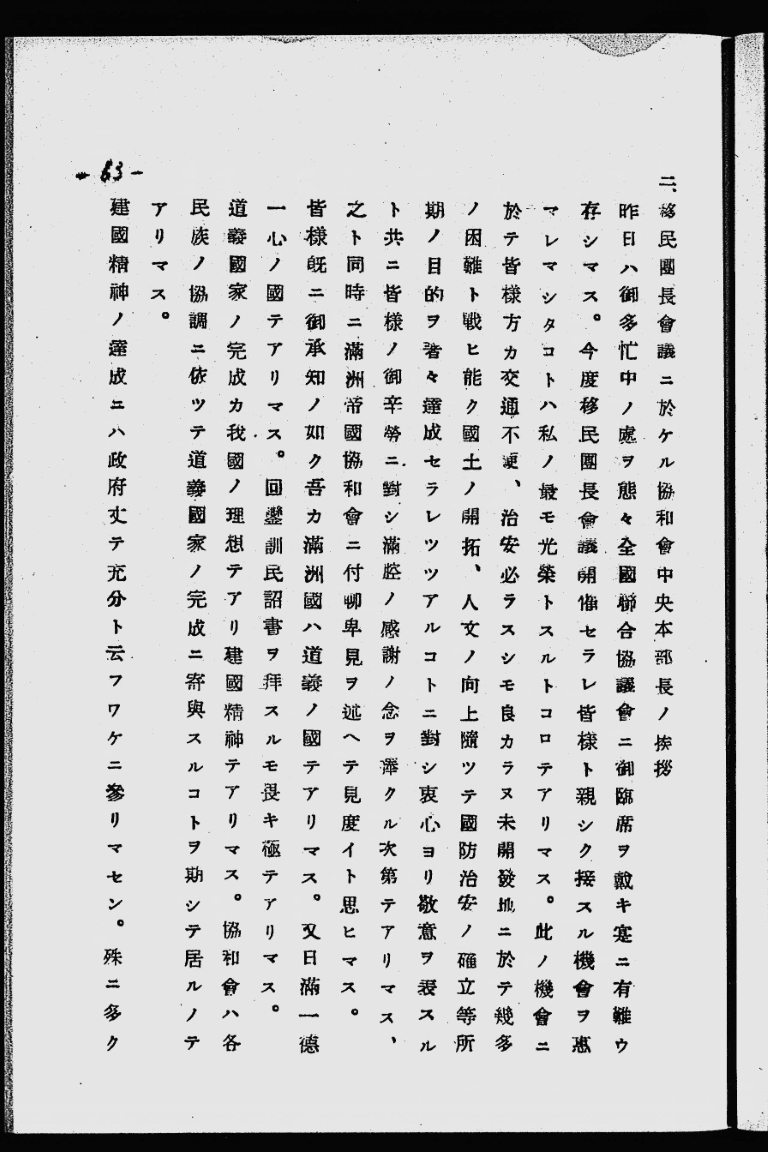 二、移民團長會議ニ於ケル協和會中央本部長ノ挨拶
昨日ハ御多忙中ノ處ヲ態々全國聯合協議會ニ御臨席ヲ戴キ寔ニ有難ウ
存シマス。今度移民團長會議開催セラレ皆樣ト親シク接スル機會ヲ惠
マレマシタコトハ私ノ最モ光榮トスルトコロテアリマス。此ノ機會ニ
於テ皆樣方カ交通不便、治安必ラスシモ良カラヌ未開發地ニ於テ幾多
ノ困難ト戰ヒ能ク國土ノ開拓、人文ノ向上隨ツテ國防治安ノ確立等所
期ノ目的ヲ著々達成セラレツツアルコトニ對シ衷心ヨリ敬意ヲ表スル
ト共ニ皆樣ノ御辛勞ニ對シ滿腔ノ感謝ノ念ヲ澤クル次第テアリマス、
之ト同時ニ滿洲帝國協和會ニ付聊卑見ヲ述ヘテ見度イト思ヒマス。
皆樣既ニ御承知ノ如ク吾カ滿洲國ハ道義ノ國テアリマス。又日滿一德
一心ノ國テアリマス。回鑾訓民詔書ヲ拜スルモ畏キ極テアリマス。
道義國家ノ完成カ我國ノ理想テアリ建國精神テアリマス。協和會ハ各
民族ノ協調ニ依ツテ道義國家ノ完成ニ寄與スルコトヲ期シテ居ルノテ
アリマス。
建國精神ノ達成ニハ政府丈テ充分ト云フワケニ參リマセン。殊ニ多ク
- 63 -